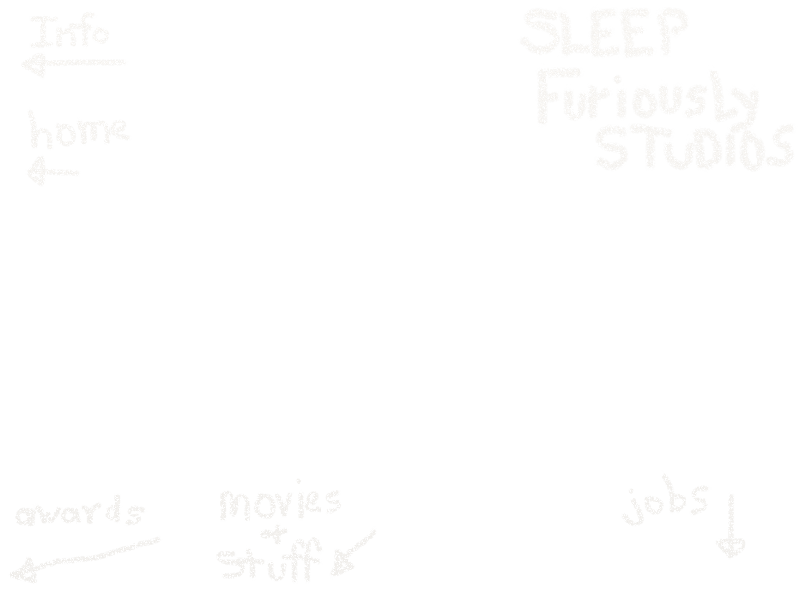 Info
SLEEP
Furiously
STUDIOS
home
awards
movies
+
Stuff
jobs